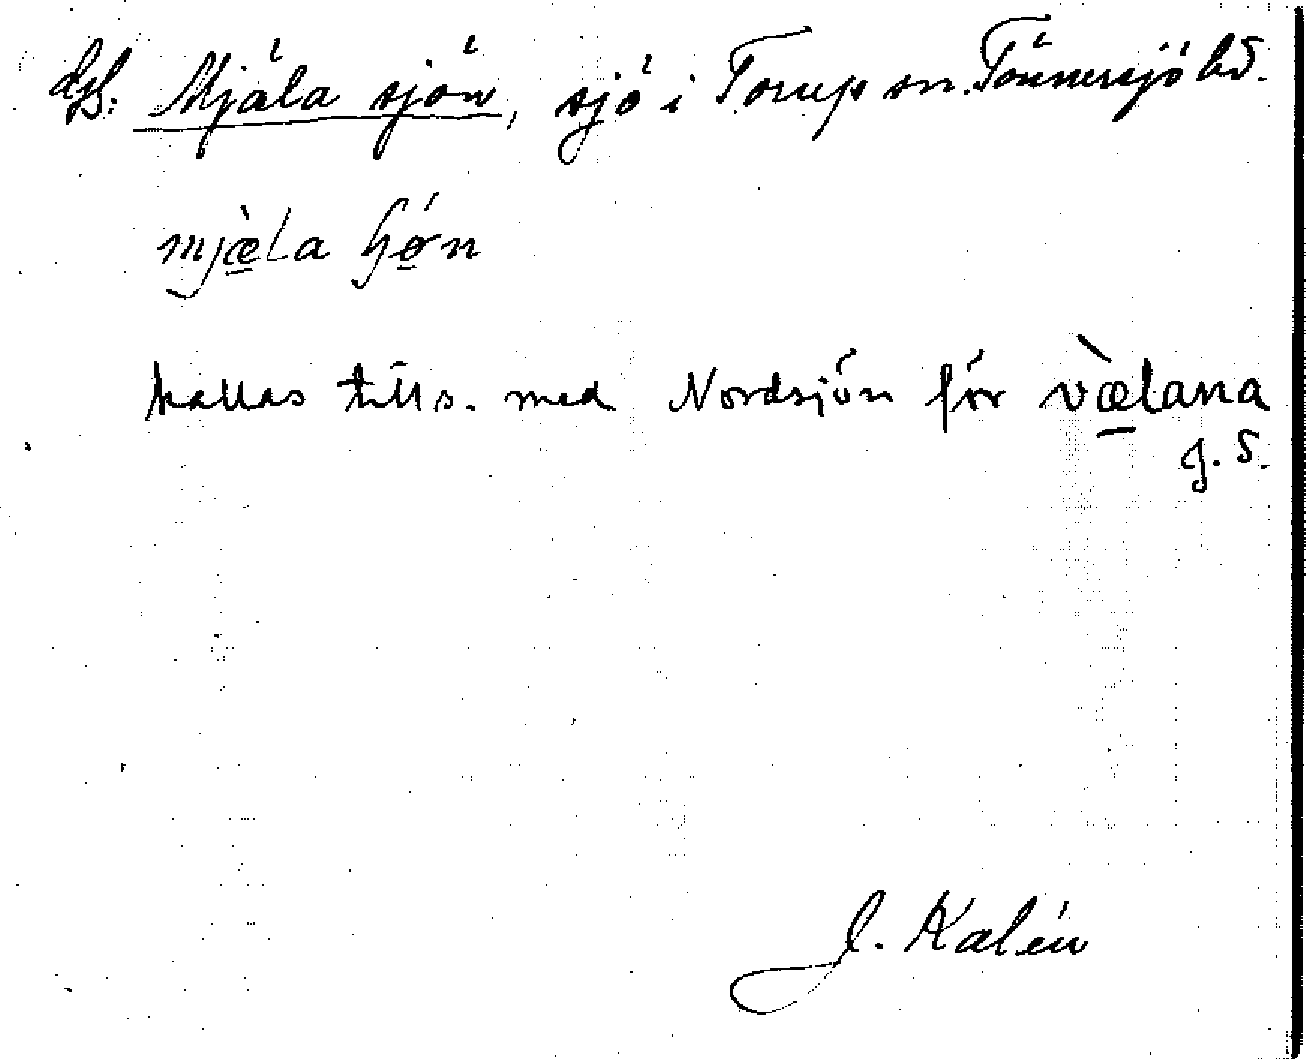 Mjäla sjön, sjö i Torup sn. Tönnersjö hd.
mjæ̀la ɧǿn
kallas tills. med Nordsjön för væ̀lana
J. S.
J. Kalén